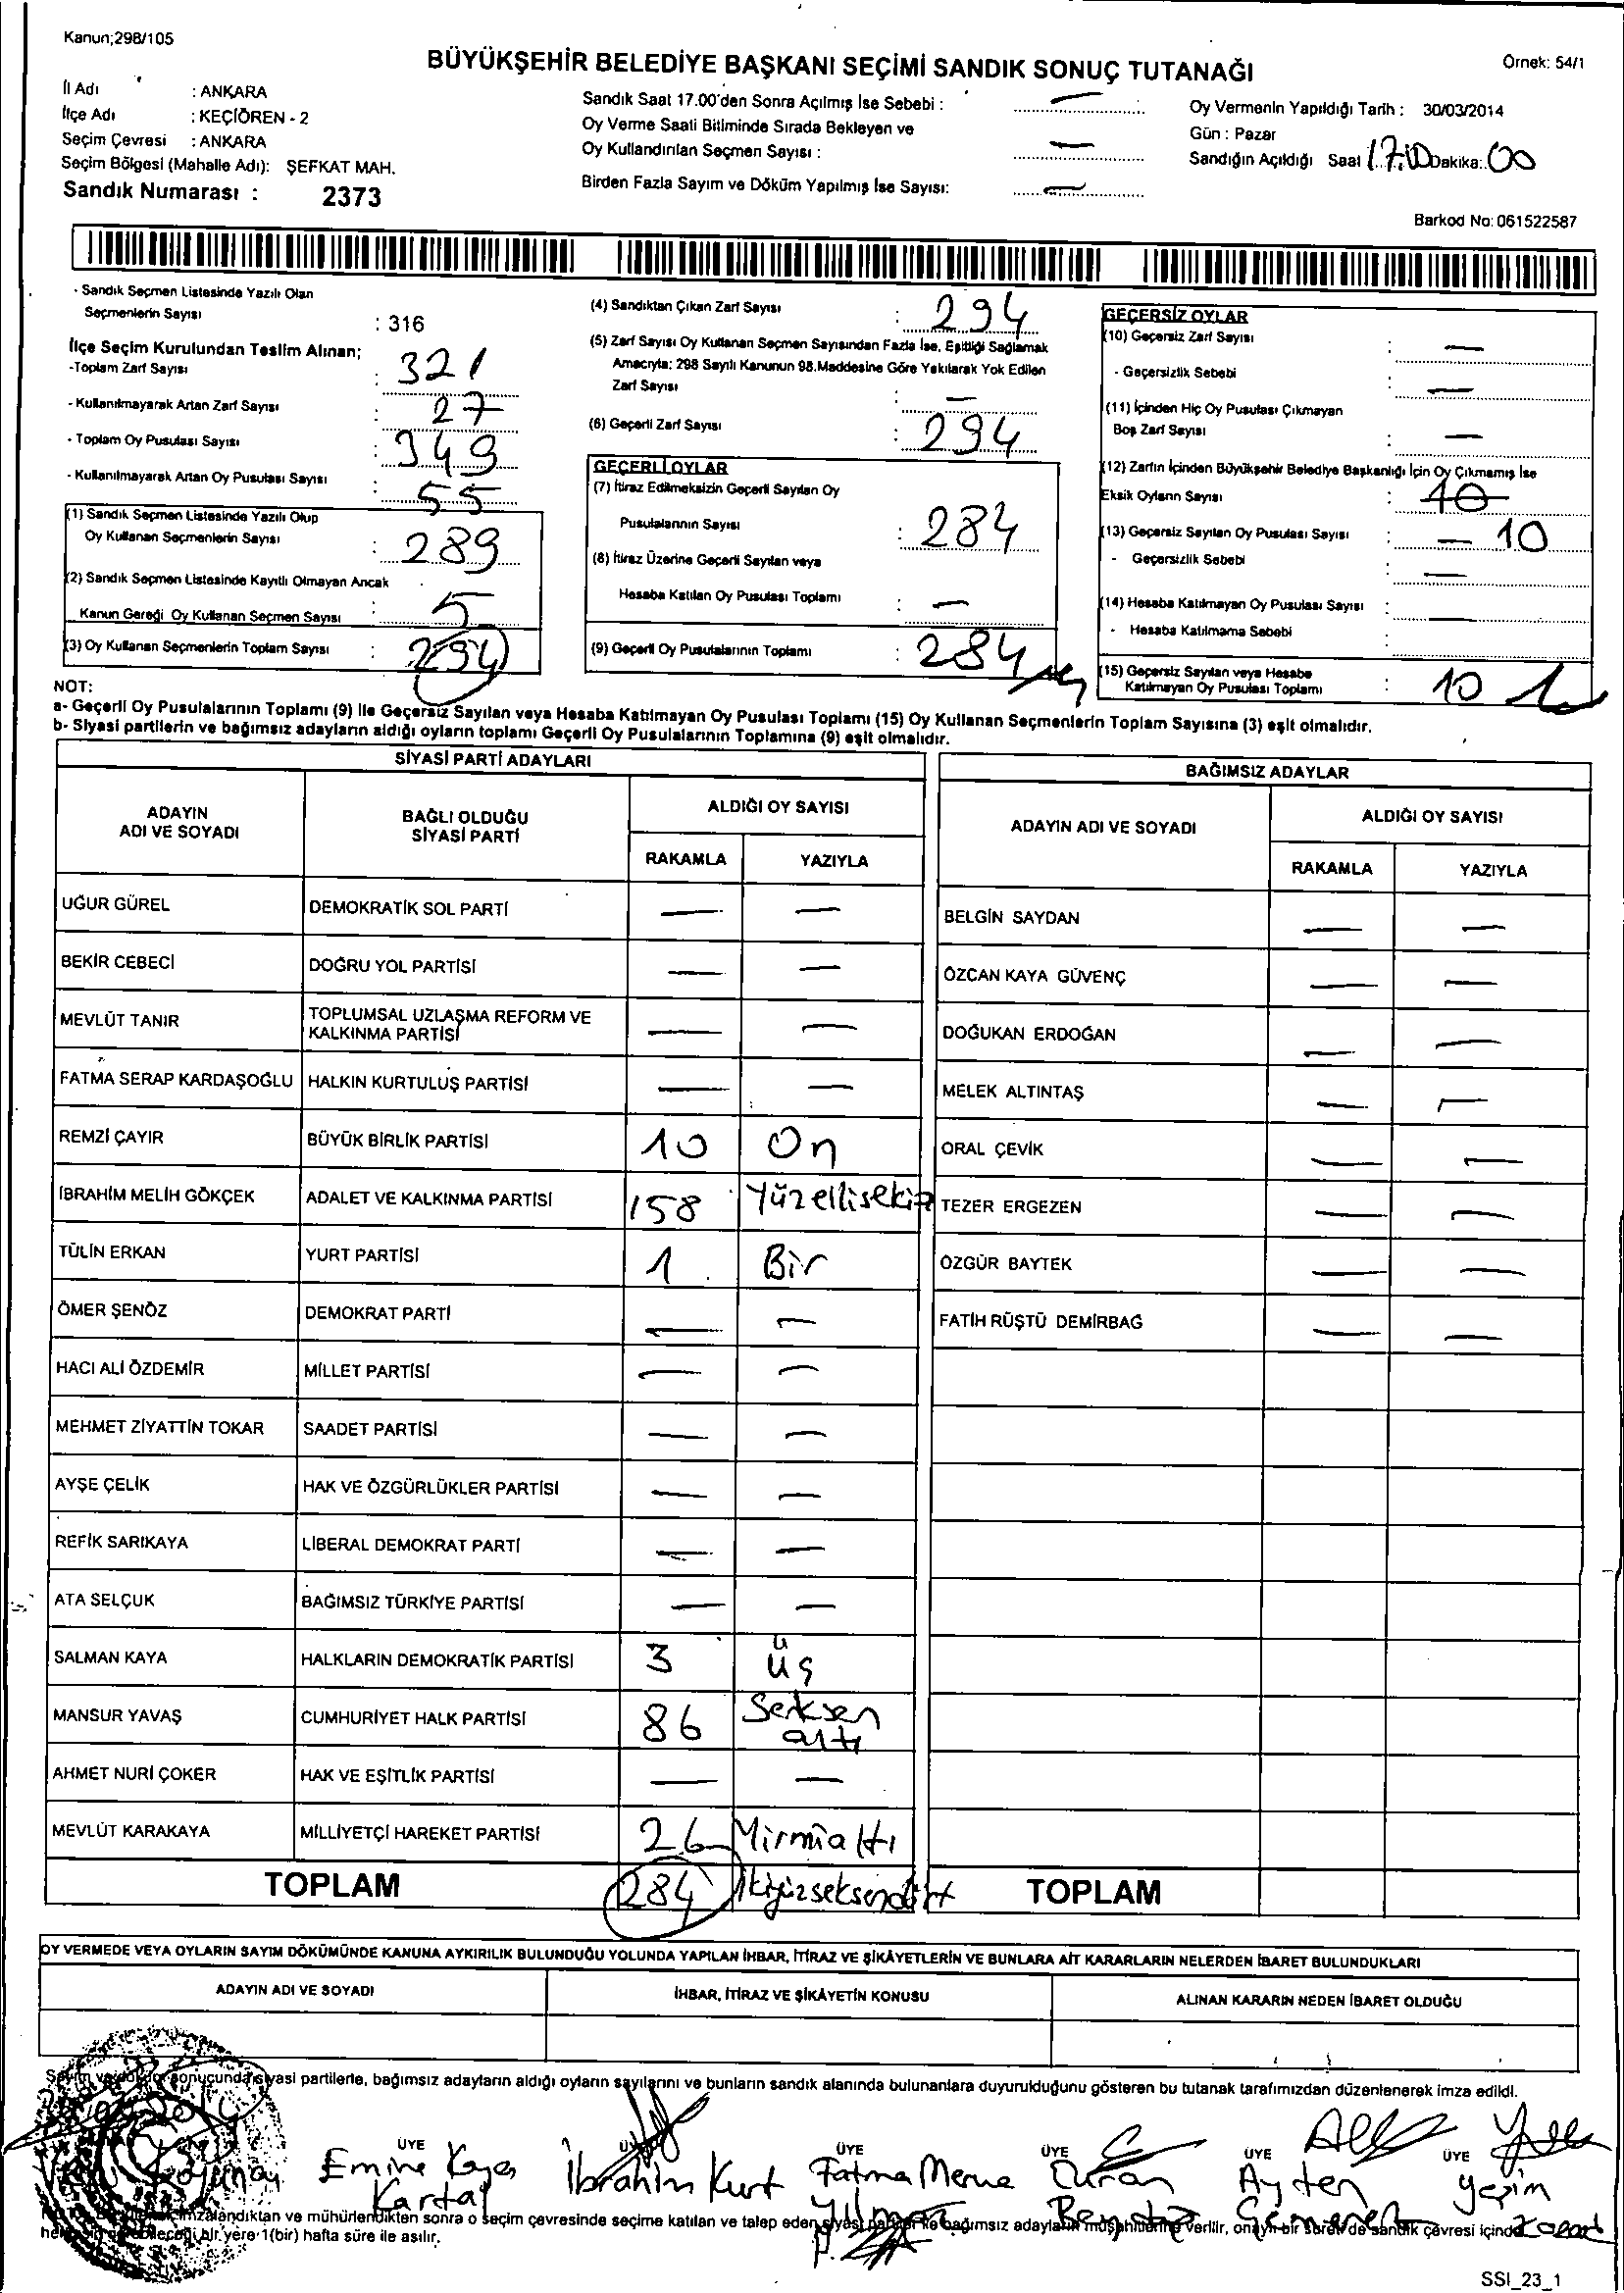 Kanun;298/105
BÜYÜKŞEHİR BELEDİYE BAŞKANI SEÇİMİ SANDIK SONUÇ TUTANAĞI
Örnek: 54/1
İl Adı : ANKARA
İlçe Adı : KEÇİÖREN - 2
Seçim Çevresi : ANKARA
Seçim Bölgesi (Mahalle Adı): ŞEFKAT MAH.
Sandık Numarası : 2373
Sandık Saat 17.00'den Sonra Açılmış İse Sebebi : —
Oy Verme Saati Bitiminde Sırada Bekleyen ve
Oy Kullandırılan Seçmen Sayısı : —
Birden Fazla Sayım ve Döküm Yapılmış İse Sayısı: —
Oy Vermenin Yapıldığı Tarih : 30/03/2014
Gün : Pazar
Sandığın Açıldığı Saat 17:00 Dakika: 00
Barkod No: 061522587
- Sandık Seçmen Listesinde Yazılı Olan
Seçmenlerin Sayısı : 316
İlçe Seçim Kurulundan Teslim Alınan;
-Toplam Zarf Sayısı : 321
- Kullanılmayarak Artan Zarf Sayısı : 27
- Toplam Oy Pusulası Sayısı : 349
- Kullanılmayarak Artan Oy Pusulası Sayısı : 55
(1) Sandık Seçmen Listesinde Yazılı Olup
Oy Kullanan Seçmenlerin Sayısı : 289
(2) Sandık Seçmen Listesinde Kayıtlı Olmayan Ancak
Kanun Gereği Oy Kullanan Seçmen Sayısı : 5
(3) Oy Kullanan Seçmenlerin Toplam Sayısı : 294
(4) Sandıktan Çıkan Zarf Sayısı : 294
(5) Zarf Sayısı Oy Kullanan Seçmen Sayısından Fazla İse, Eşitliği Sağlamak
Amacıyla: 298 Sayılı Kanunun 98.Maddesine Göre Yakılarak Yok Edilen
Zarf Sayısı : —
(6) Geçerli Zarf Sayısı : 294
GEÇERLİ OYLAR
(7) İtiraz Edilmeksizin Geçerli Sayılan Oy
Pusulalarının Sayısı : 284
(8) İtiraz Üzerine Geçerli Sayılan veya
Hesaba Katılan Oy Pusulası Toplamı : —
(9) Geçerli Oy Pusulalarının Toplamı : 284
GEÇERSİZ OYLAR
(10) Geçersiz Zarf Sayısı : —
- Geçersizlik Sebebi : —
(11) İçinden Hiç Oy Pusulası Çıkmayan
Boş Zarf Sayısı : —
(12) Zarfın İçinden Büyükşehir Belediye Başkanlığı İçin Oy Çıkmamış İse
Eksik Oyların Sayısı : 10
(13) Geçersiz Sayılan Oy Pusulası Sayısı : — 10
- Geçersizlik Sebebi : —
(14) Hesaba Katılmayan Oy Pusulası Sayısı :
- Hesaba Katılmama Sebebi
(15) Geçersiz Sayılan veya Hesaba
Katılmayan Oy Pusulası Toplamı : 10
NOT:
a- Geçerli Oy Pusulalarının Toplamı (9) ile Geçersiz Sayılan veya Hesaba Katılmayan Oy Pusulası Toplamı (15) Oy Kullanan Seçmenlerin Toplam Sayısına (3) eşit olmalıdır.
b- Siyasi partilerin ve bağımsız adayların aldığı oyların toplamı Geçerli Oy Pusulalarının Toplamına (9) eşit olmalıdır.
SİYASİ PARTİ ADAYLARI
ADAYIN ADI VE SOYADI BAĞLI OLDUĞU SİYASİ PARTİ ALDIĞI OY SAYISI
RAKAMLA YAZIYLA
UĞUR GÜREL DEMOKRATİK SOL PARTİ — —
BEKİR CEBECİ DOĞRU YOL PARTİSİ — —
MEVLÜT TANIR TOPLUMSAL UZLAŞMA REFORM VE KALKINMA PARTİSİ — —
FATMA SERAP KARDAŞOĞLU HALKIN KURTULUŞ PARTİSİ — —
REMZİ ÇAYIR BÜYÜK BİRLİK PARTİSİ 10 On
İBRAHİM MELİH GÖKÇEK ADALET VE KALKINMA PARTİSİ 158 Yüzellisekiz
TÜLİN ERKAN YURT PARTİSİ 1 Bir
ÖMER ŞENÖZ DEMOKRAT PARTİ — —
HACI ALİ ÖZDEMİR MİLLET PARTİSİ — —
MEHMET ZİYATTİN TOKAR SAADET PARTİSİ — —
AYŞE ÇELİK HAK VE ÖZGÜRLÜKLER PARTİSİ — —
REFİK SARIKAYA LİBERAL DEMOKRAT PARTİ — —
ATA SELÇUK BAĞIMSIZ TÜRKİYE PARTİSİ — —
SALMAN KAYA HALKLARIN DEMOKRATİK PARTİSİ 3 üç
MANSUR YAVAŞ CUMHURİYET HALK PARTİSİ 86 Seksen altı
AHMET NURİ ÇOKER HAK VE EŞİTLİK PARTİSİ — —
MEVLÜT KARAKAYA MİLLİYETÇİ HAREKET PARTİSİ 26 Yirmialtı
TOPLAM 284 ikiyüzseksendört
BAĞIMSIZ ADAYLAR
ADAYIN ADI VE SOYADI ALDIĞI OY SAYISI
RAKAMLA YAZIYLA
BELGİN SAYDAN — —
ÖZCAN KAYA GÜVENÇ — —
DOĞUKAN ERDOĞAN — —
MELEK ALTINTAŞ — —
ORAL ÇEVİK — —
TEZER ERGEZEN — —
ÖZGÜR BAYTEK — —
FATİH RÜŞTÜ DEMİRBAĞ — —
TOPLAM
OY VERMEDE VEYA OYLARIN SAYIM DÖKÜMÜNDE KANUNA AYKIRILIK BULUNDUĞU YOLUNDA YAPILAN İHBAR, İTİRAZ VE ŞİKÂYETLERİN VE BUNLARA AİT KARARLARIN NELERDEN İBARET BULUNDUKLARI
ADAYIN ADI VE SOYADI İHBAR, İTİRAZ VE ŞİKÂYETİN KONUSU ALINAN KARARIN NEDEN İBARET OLDUĞU
sonucunda siyasi partilerle, bağımsız adayların aldığı oyların sayılarını ve bunların sandık alanında bulunanlara duyurulduğunu gösteren bu tutanak tarafımızdan düzenlenerek imza edildi.
ÜYE ÜYE ÜYE ÜYE ÜYE
Emine Kaya Kartal
İbrahim Kurt
Fatma Merve Yılmaz
Turan
Ayten
Yeşim
imzalandıktan ve mühürlendikten sonra o seçim çevresinde seçime katılan ve talep eden siyasi ile bağımsız adayların müşahitlerine verilir, onaylı bir sureti de sandık çevresi içinde
bir yere 1(bir) hafta süre ile asılır.
SSI_23_1